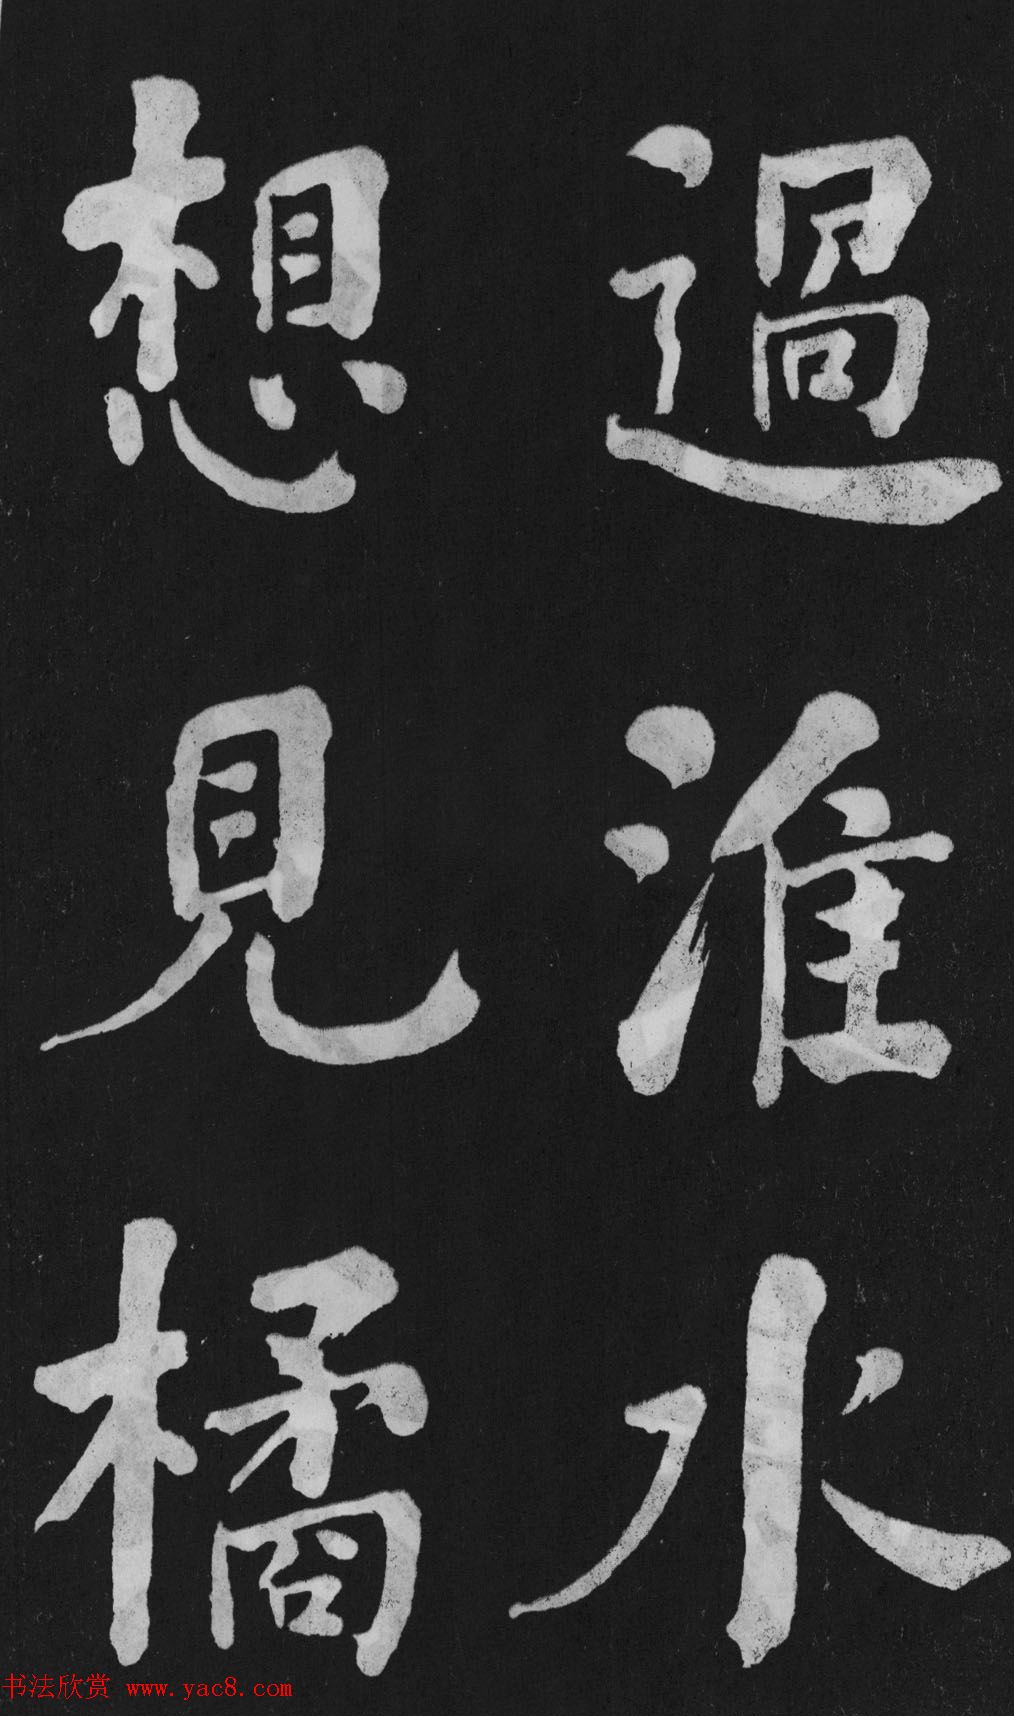 過淮水
想見橘
书法欣赏 www.yac8.com